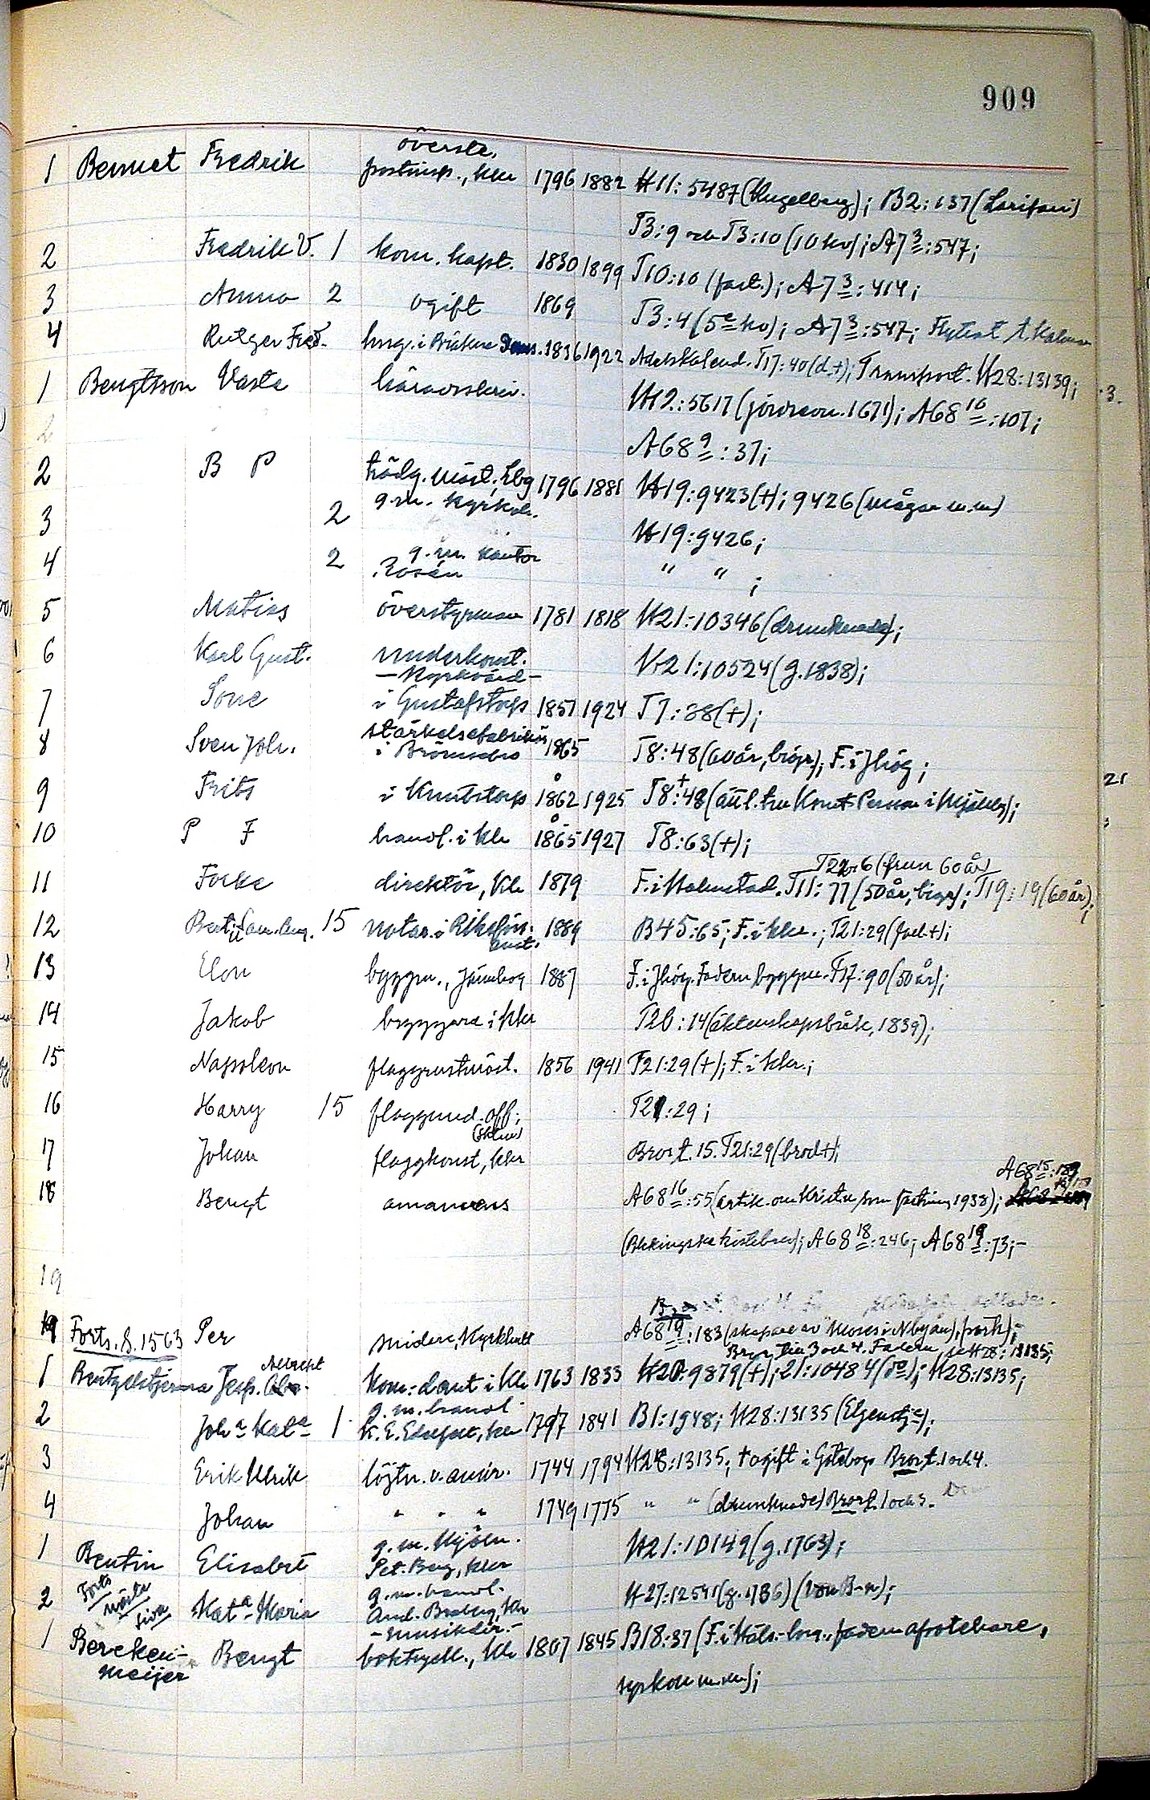 909
1 Bennet Fredrik överste, postinsp., kkr 1796 1882 H11:5487 (Kugelberg); B2:137 (Larifari)
T3:9 och T3:10 (10 ko); A7 3:547;
2 Fredrik V. 1 kom. kapt. 1830 1899 T10:10 (fast.); A7 3:414;
3 Anna 2 ogift 1869 T3:4 (5e ko); A7 3:547; Flyttat t. Kalmar
4 Rutger Fred. 1836 1922 Adelskalend. T17:40 (d+); Transport. H28:13139;
1 Bengtsson Vaste häradsskriv. H12:5617 (jordrev. 1671); A68 10:107;
A68 9:37;
2 B P trädg. mäst., Lbg 1796 1881 H19:9423 (+); 9426 (mågar m.m)
3 2 g.m. Kyrkoh. H19:9426;
4 2 g.m. kantor Rosén " " ;
5 Matias överstyrman 1781 1818 H21:10346 (drunknade);
6 Karl Gust. underkonst. H21:10524 (g. 1838);
7 Tone – Kyrkvärd – i Gustafstorp 1857 1924 T7:38 (+);
8 Sven Joh. stärkelsefabrikör i Brömsebro 1865 T8:48 (60 år, biogr.); F. i Jhög;
9 Frits i Knutstorp 1862 1925 T8:48 (
10 P F handl. i kkr 1865 1927 T8:63 (+);
T22:6 (frun 60 år)
11 Focke direktör, Kkr 1879 F. i Halmstad. T11:77 (50 år, biogr); T19:19 (60 år);
12 Bertil Sam. Aug. 15 notar. i Riksförs. anst. 1889 B45:65; F. i kkr.; T21:29 (fad+);
13 Elon byggm., Jämshög 1887 F. i Jhög. Fadern byggm. T17:90 (50 år);
14 Jakob byggare i kkr T20:14 (äktenskapsbråk, 1839);
15 Napoleon flaggrustmäst. 1856 1941 T21:29 (+); F. i kkr.;
16 Harry 15 flaggund.off. T21:29;
17 Johan flaggkonst, kkr Bror t. 15. T21:29 (brod+);
18 Bengt amanuens A68 16:55 (artik. om Kristianopel som fästning 1938); A68 15:189
(Blekingska kistebrev); A68 18:246; A68 19:73;-
19
19 Forts. S. 1563 Per snidare, Kyrkhult A68 19:183 (skapare av Moses i Nbyån), portr);-
Bror till 3 och 4. Fadern, se H28:13135;
1 Bentzelstjerna Jesp. Albrecht kom:dant i Kkr 1763 1833 H20:9879 (+); 21:10484 (do); H28:13135;
2 Joha Kata 1 g.m. handl. K. E. kkr 1797 1841 B1:1948; H28:13135 (Elgenstj-a);
3 Erik Ulrik löjtn. v. amir. 1744 1794 H28:13135; + ogift i Göteborg. Bror t. 1 och 4.
4 Johan " " " 1749 1775 " " (drunknade) Bror t. 1 och 3.
1 Bentin Elisabet g.m. Mjöln. Pet. Berg, kkr H21:10149 (g. 1763);
2 Forts nästa sida Kata Maria g.m. handl. And. Broberg, kkr H27:12541 (g. 1786) (von B-n);
1 Berckenmeijer Bengt – musikdir. – boktryck., Kkr 1807 1845 B18:37 (F. i Häls.-borg., fadern apotekare,
syskon m.m);